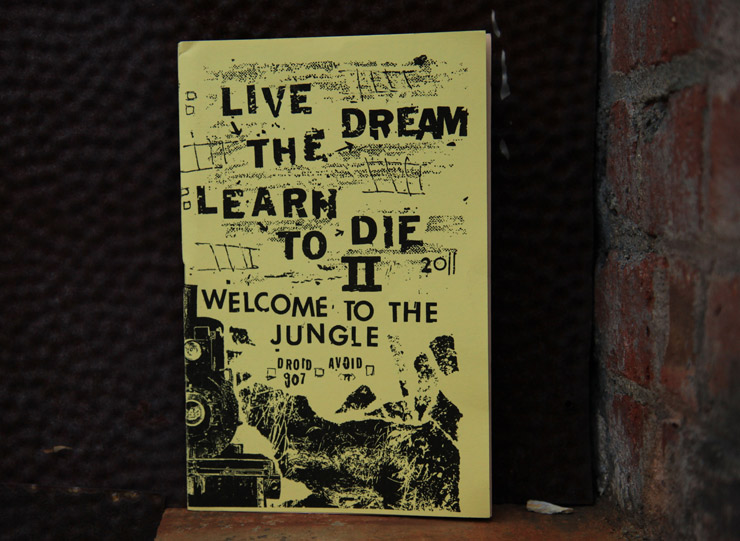 LIVE
THE DREAM
LEARN
TO DIE
II 2011
WELCOME TO THE
JUNGLE
DROID AVOID
907